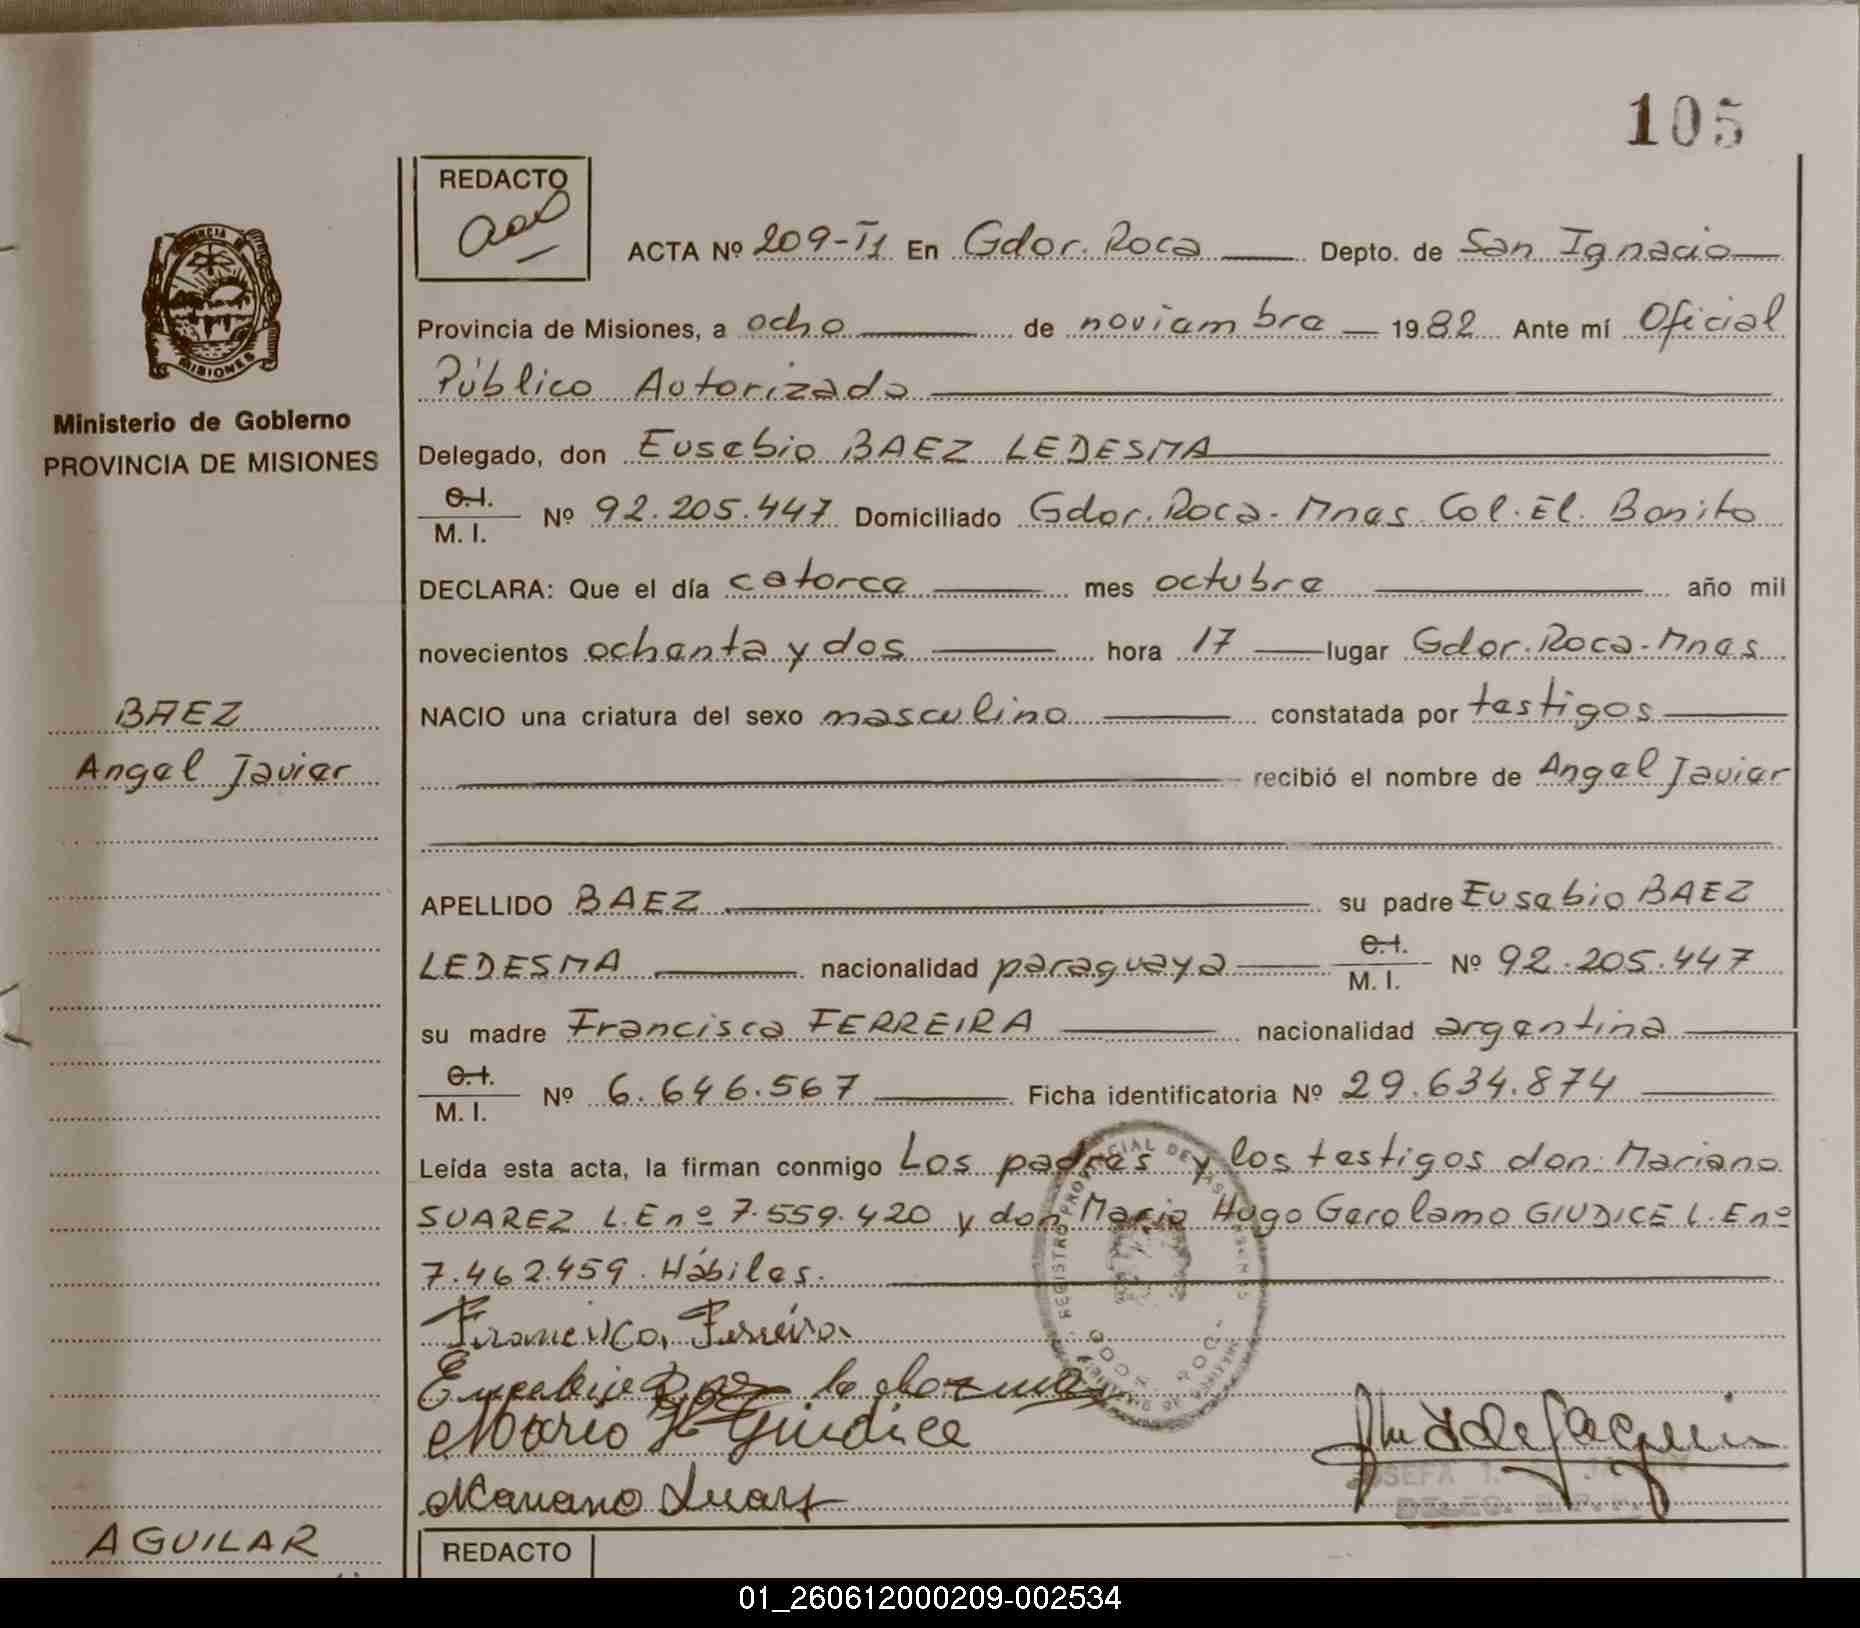 105
REDACTO
ACTA Nº 209-T1 En Gdor. Roca Depto. de San Ignacio
Provincia de Misiones, a ocho de noviembre 1982 Ante mí Oficial
Público Autorizado
Ministerio de Gobierno
PROVINCIA DE MISIONES
Delegado, don Eusebio BAEZ LEDESMA
C.I. / M. I. Nº 92.205.447 Domiciliado Gdor. Roca - Mnes. Col. El Bonito
DECLARA: Que el día catorce mes octubre año mil
novecientos ochenta y dos hora 17 lugar Gdor. Roca - Mnes
NACIO una criatura del sexo masculino constatada por testigos
recibió el nombre de Angel Javier
BAEZ
Angel Javier
APELLIDO BAEZ su padre Eusebio BAEZ
LEDESMA nacionalidad paraguaya C.I. / M. I. Nº 92.205.447
su madre Francisca FERREIRA nacionalidad argentina
C.I. / M. I. Nº 6.646.567 Ficha identificatoria Nº 29.634.874
Leída esta acta, la firman conmigo Los padres y los testigos don Mariano
SUAREZ L.E nº 7.559.420 y don Mario Hugo Gerolamo GIUDICE L.E nº
7.462.459. Hábiles.
Francisca Ferreira
Mario H Giudice
Mariano Suarez
AGUILAR
REDACTO
01_260612000209-002534